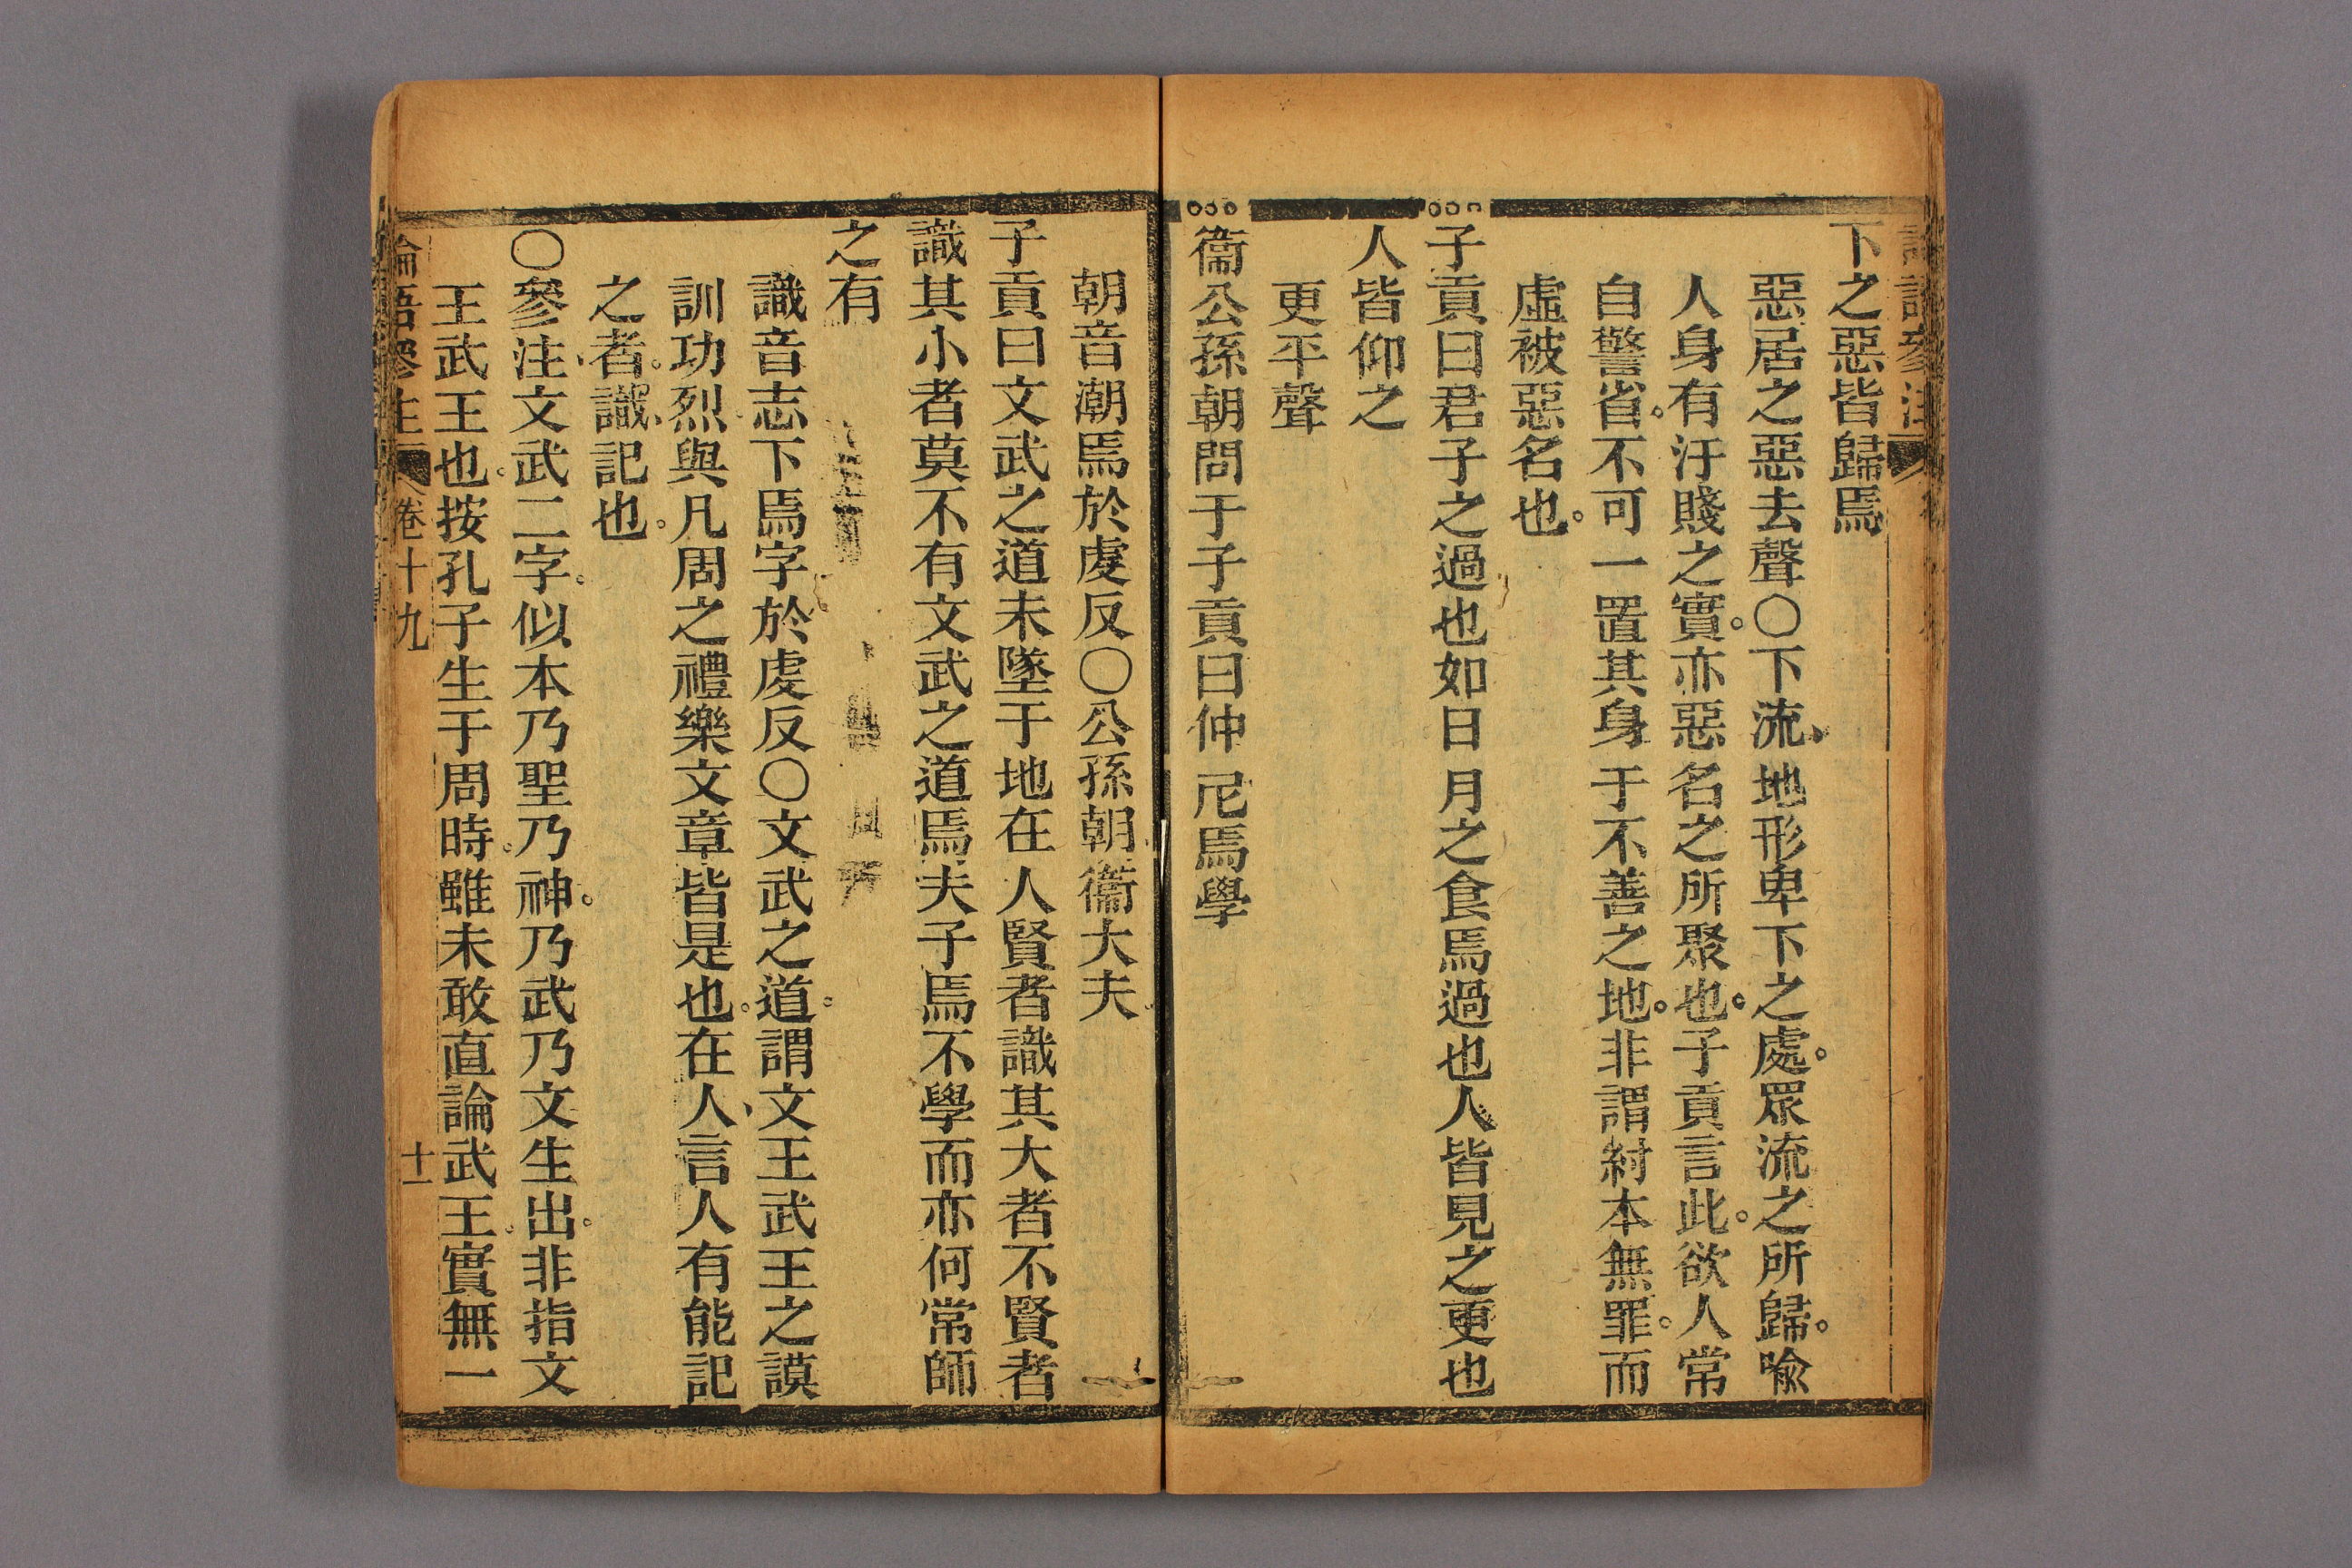 下之惡皆歸焉
惡居之惡去聲〇下流、地形卑下之處。眾流之所歸。喻
人身有汙賤之實。亦惡名之所聚也。子貢言此。欲人常
自警省。不可一置其身于不善之地。非謂紂本無罪。而
虛被惡名也。
子貢曰君子之過也如日月之食焉過也人皆見之更也
人皆仰之
更平聲
衞公孫朝問于子貢曰仲尼焉學
朝音潮焉於虔反〇公孫朝衞大夫。
子貢曰文武之道未墜于地在人賢者識其大者不賢者
識其小者莫不有文武之道焉夫子焉不學而亦何常師
之有
識音志下焉字於虔反〇文武之道。謂文王武王之謨
訓功烈、與凡周之禮樂文章皆是也。在人、言人有能記
之者。識、記也。
〇參注、文武二字。似本乃聖乃神。乃武乃文生出。非指文
王武王也。按孔子生于周時。雖未敢直論武王。實無一
論語參注 卷十九 十一